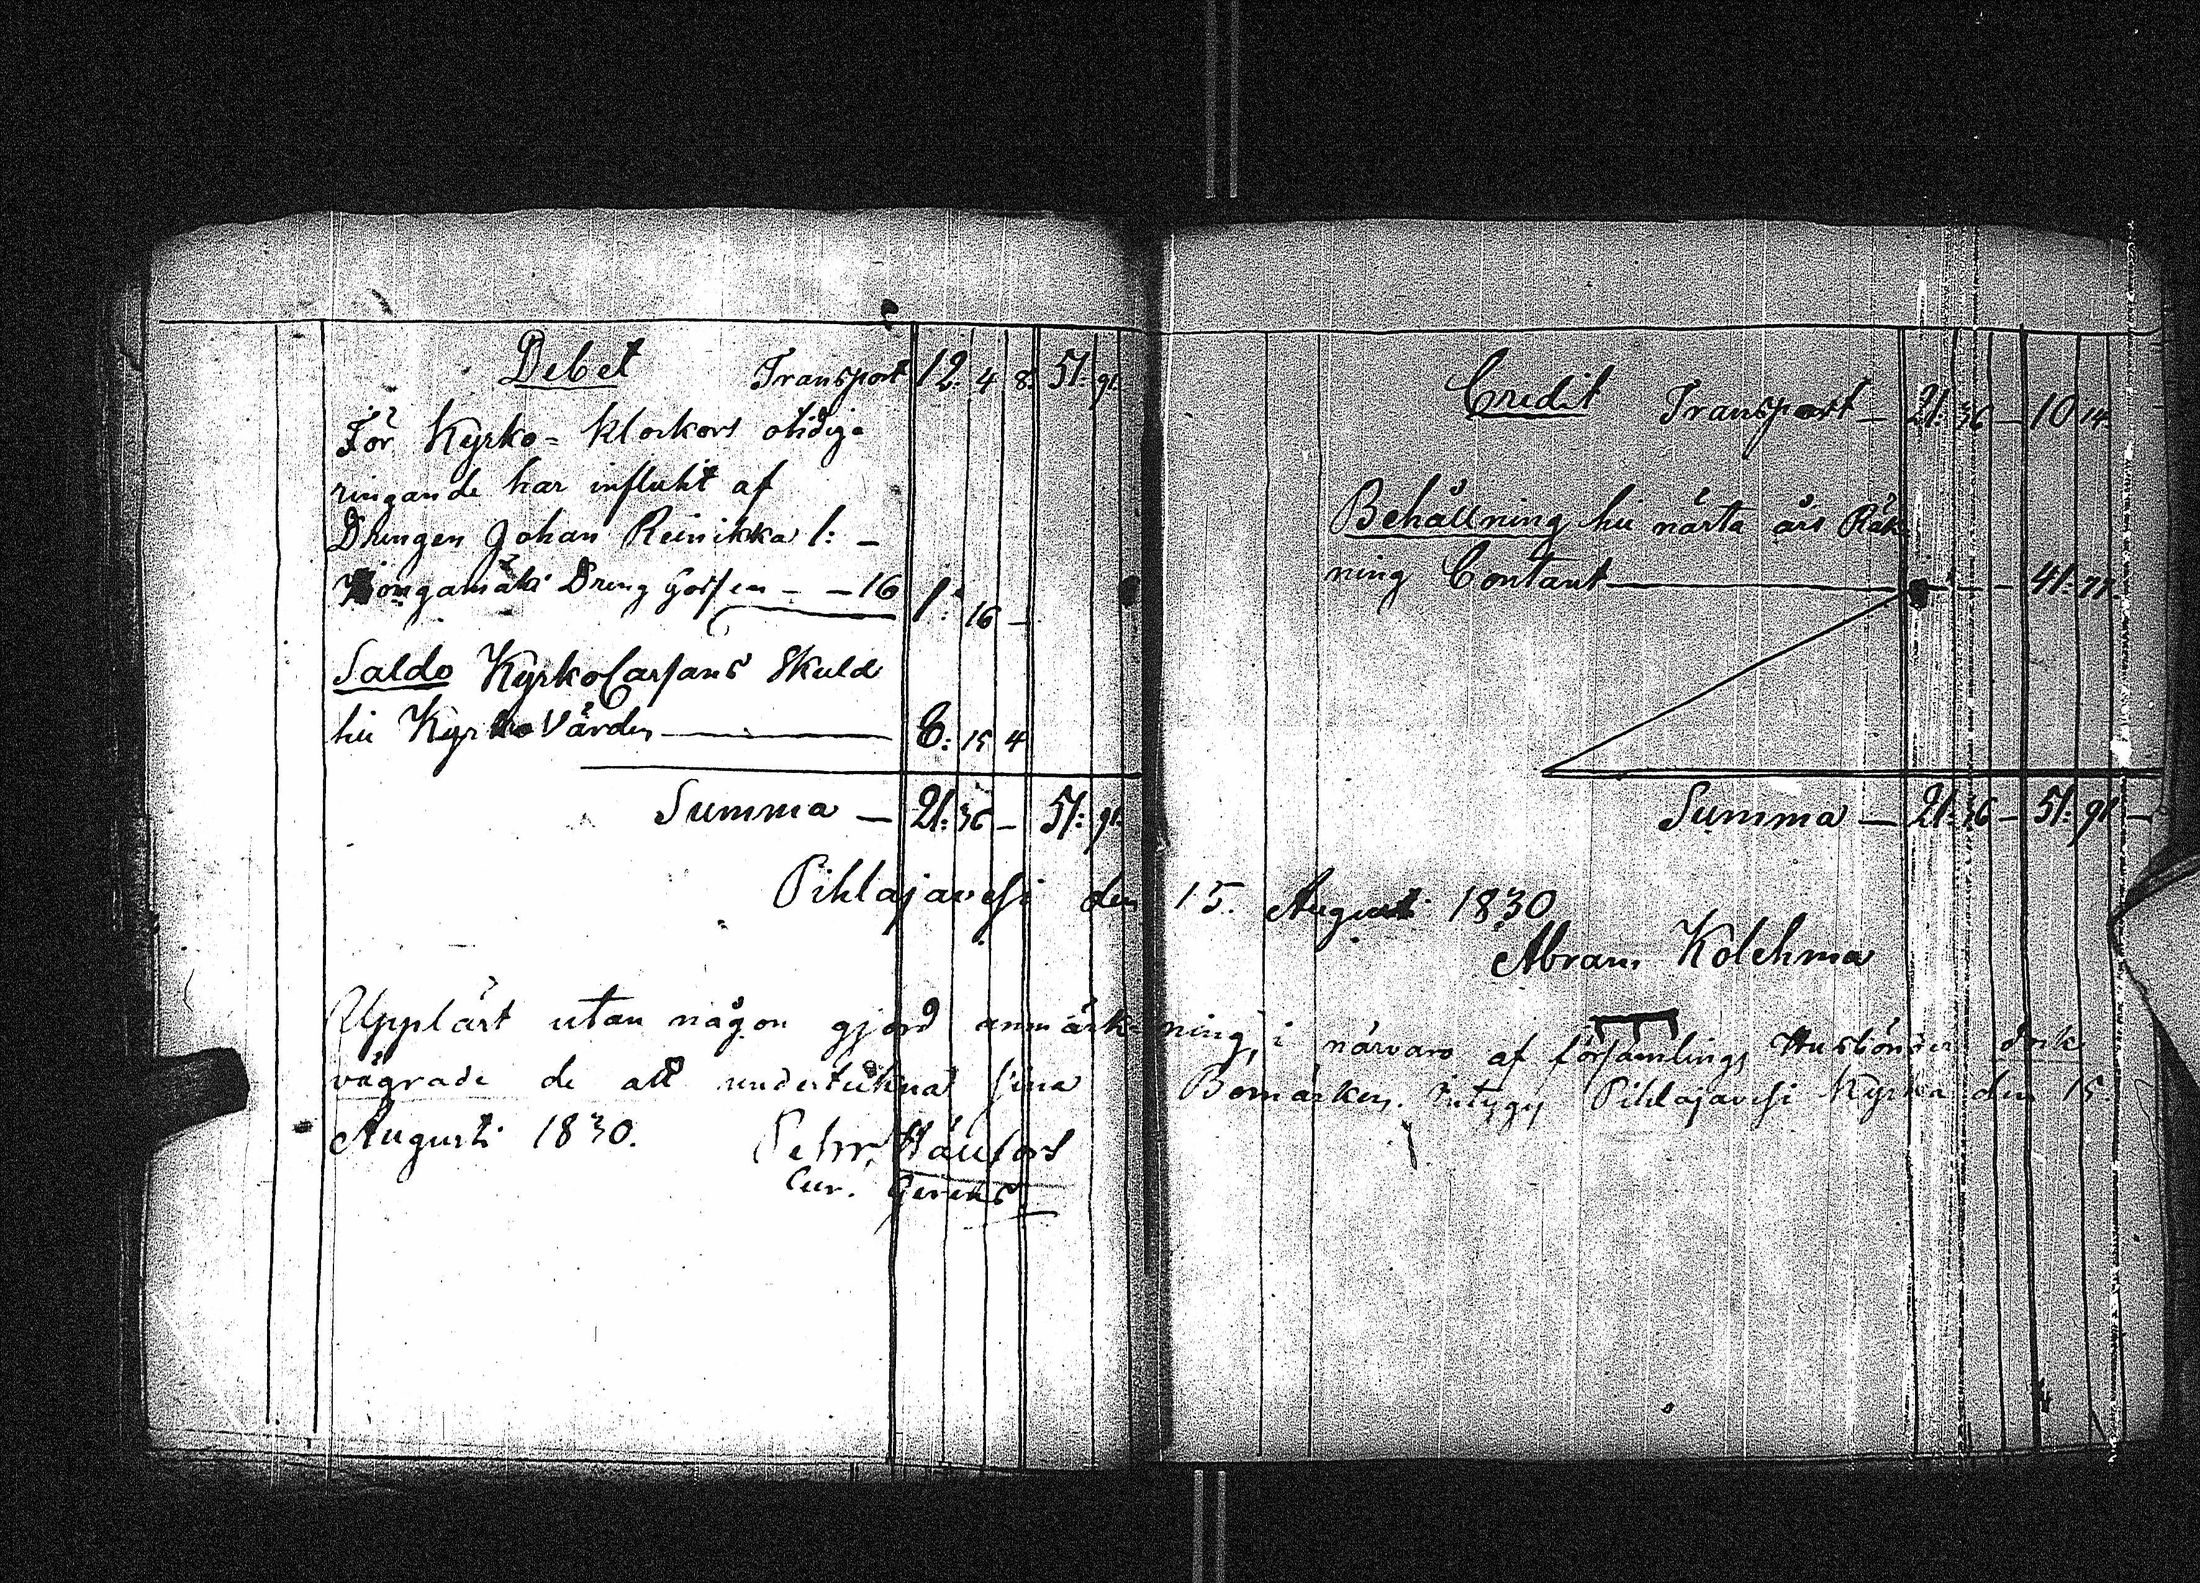 Debet Transport 12. 4 8. 51. 91.
För Kyrko-klockors otidiga
ringande har influtit af
Drengen Johan Reinikka 1: —
Dreng Gossen — — 16 1: 16 —
Saldo KyrkoCassans Skuld
till KyrkoVärden — 8: 15 4
Summa — 21: 36 — 51: 91.
Credit Transport — 21: 36 — 10 14.
Behållning till nästa års Räk-
ning Contant — — — 41: 77.
Summa — 21: 36 — 51: 91 —
Pihlajavesi den 15. Augusti 1830
Abram Kolehma
Uppläst utan någon gjord anmärkning, i närvaro af församlings Husbönder dock
vägrade de att underteckna sina Bomärken. intygar Pihlajavesi Kyrka den 15.
Augusti 1830. Pehr Hällfors
Cur. Gerens